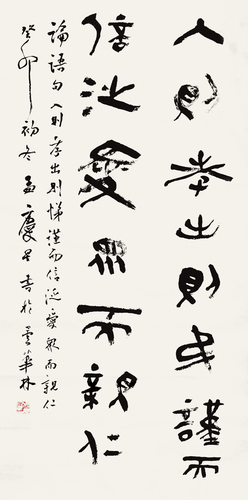 入則孝出則弟謹而
信汎愛眾而親仁
論語句入則孝出則悌謹而信泛愛眾而親仁
癸卯初冬孟慶星書於華林